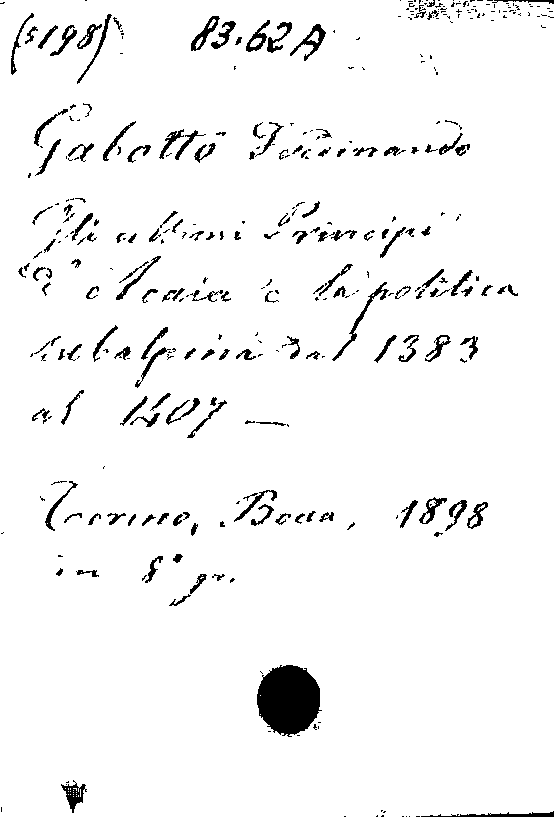 (5198) 83.62A
Gabotto Ferdinando
Gli ultimi Principi
d'Acaia e la politica
subalpina dal 1383
al 1407 —
Torino, Bocca, 1898
in 8° gr.